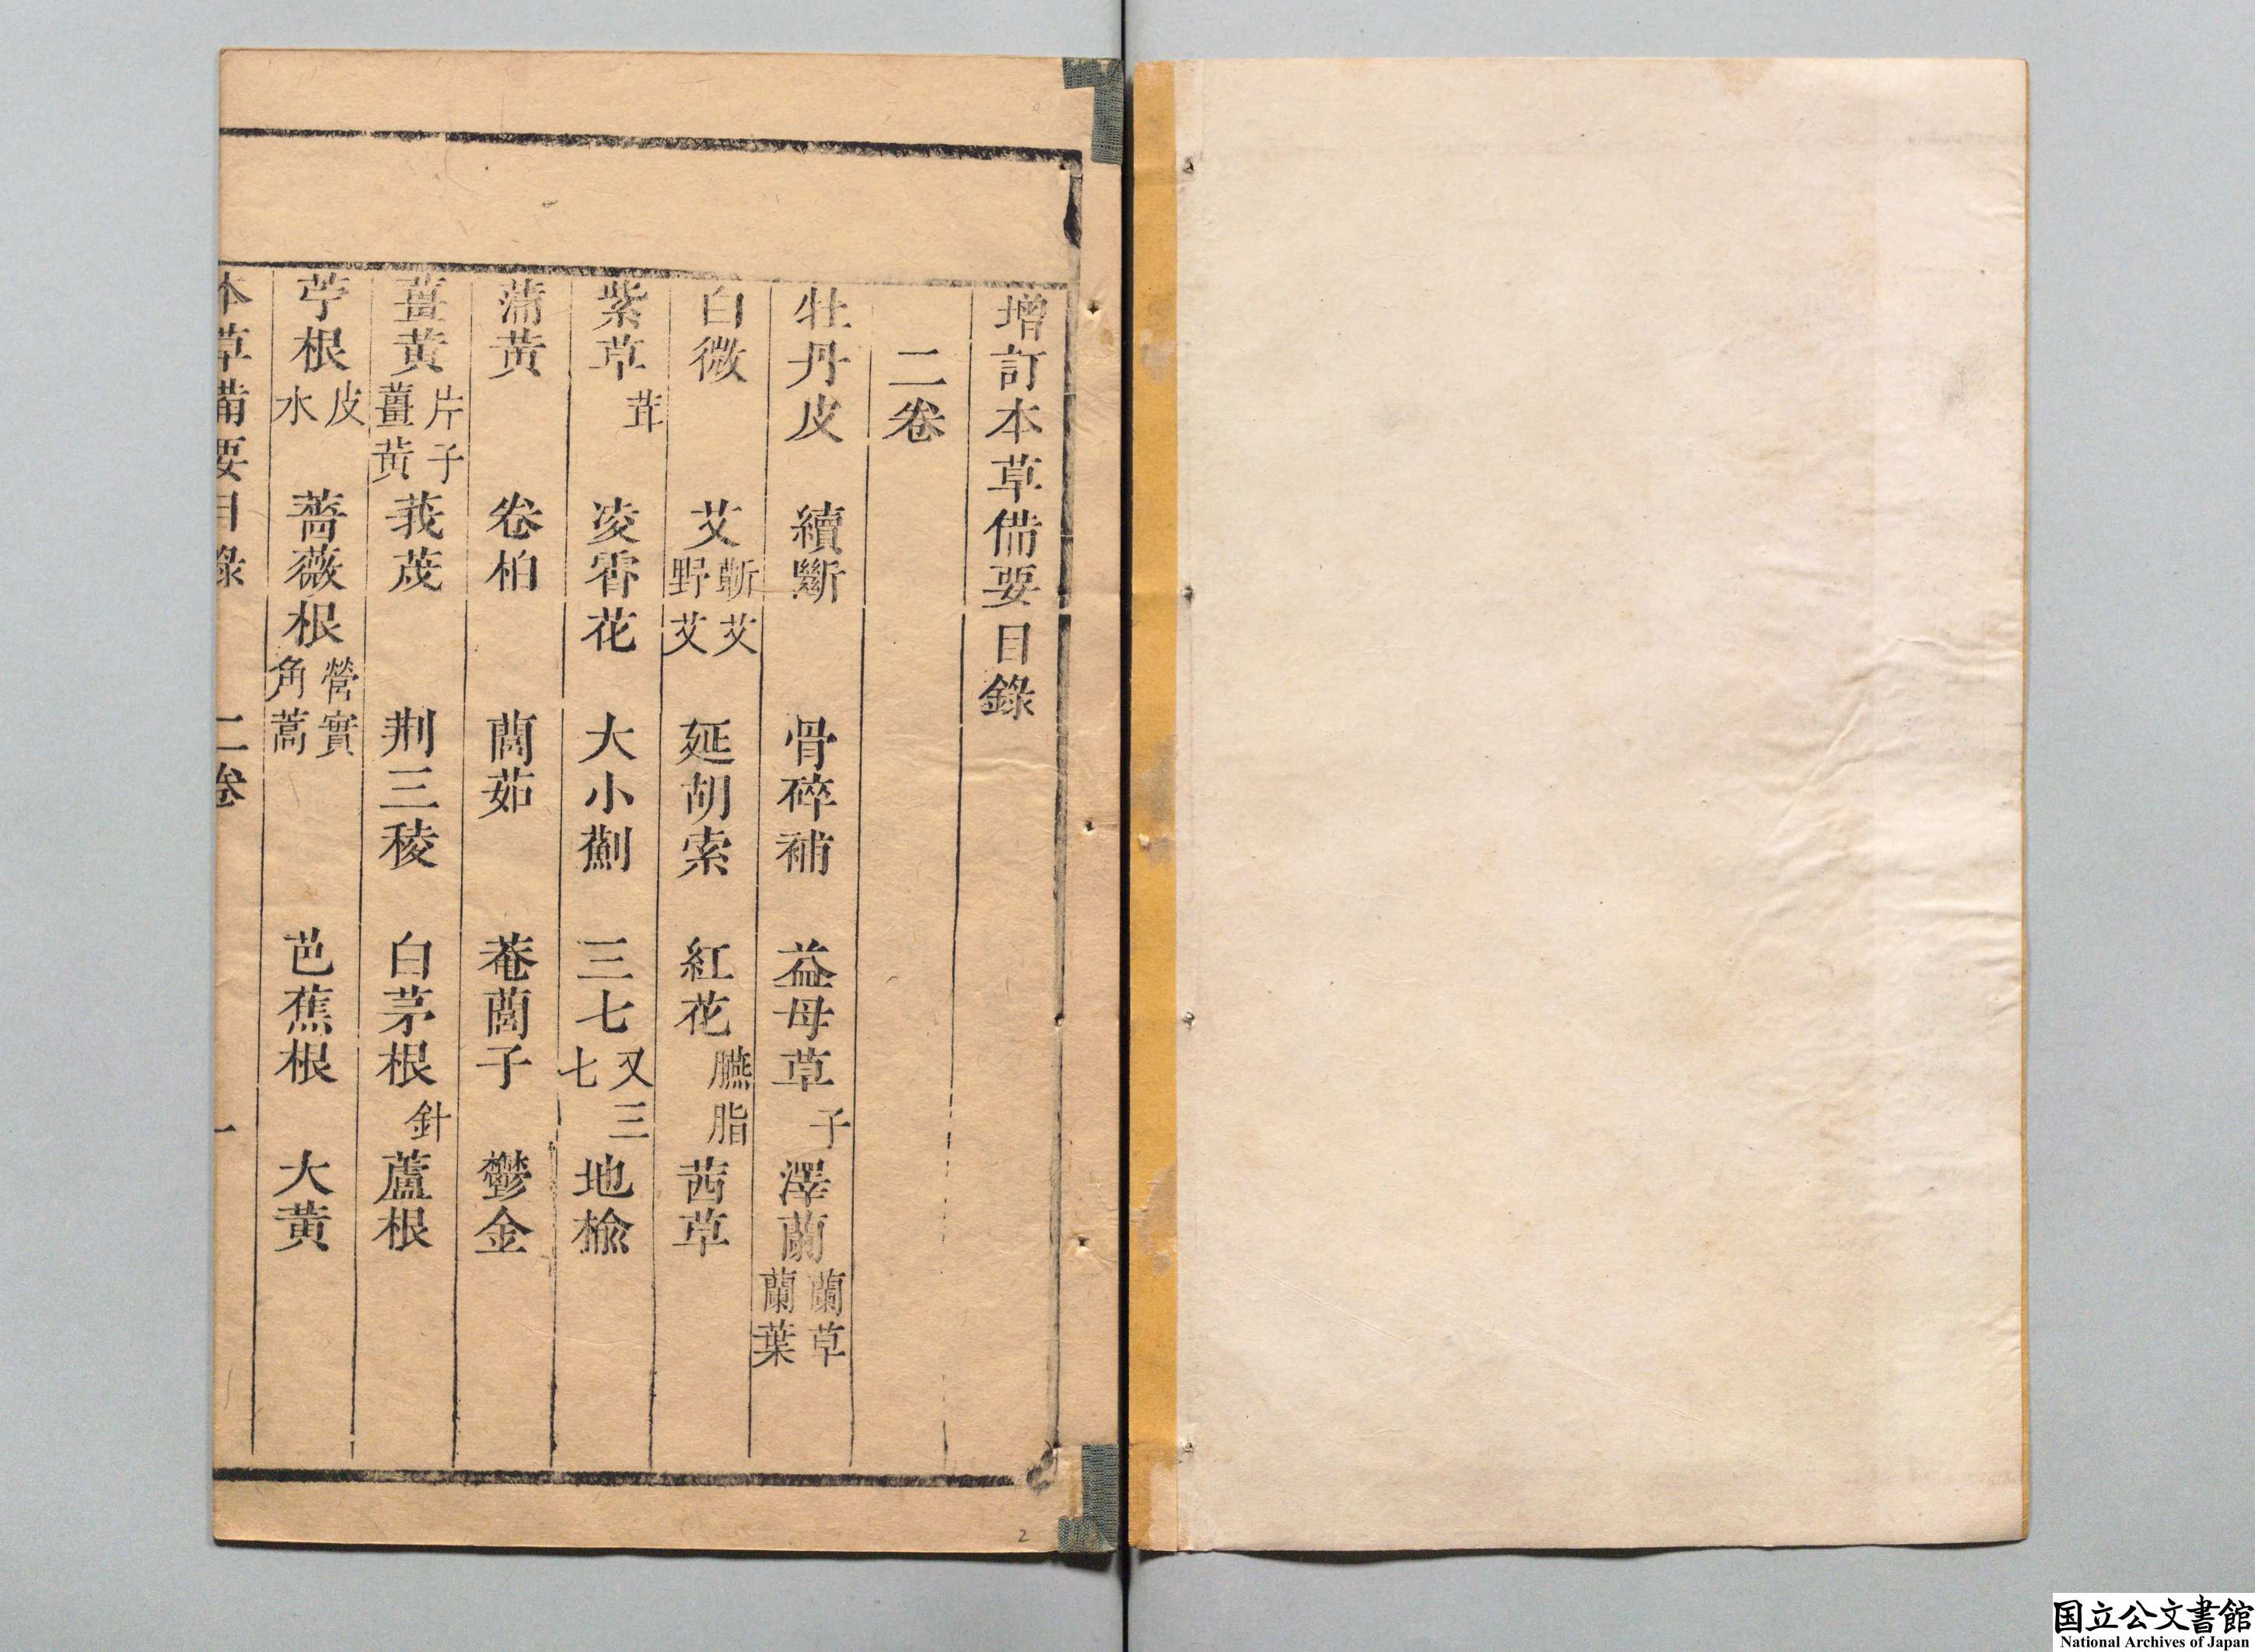 增訂本草備要目錄
二卷
牡丹皮 續斷 骨碎補 益母草子 澤蘭蘭草蘭葉
白薇 艾蘄艾野艾 延胡索 紅花臙脂 茜草
紫草茸 凌霄花 大小薊 三七又三七 地榆
蒲黃 卷柏 䕡茹 菴䕡子 鬱金
薑黃片子薑黃 莪茂 荆三稜 白茅根針 蘆根
苧根皮水 薔薇根營實角蒿 芭蕉根 大黃
本草備要目錄 二卷 一
2
国立公文書館
National Archives of Japan